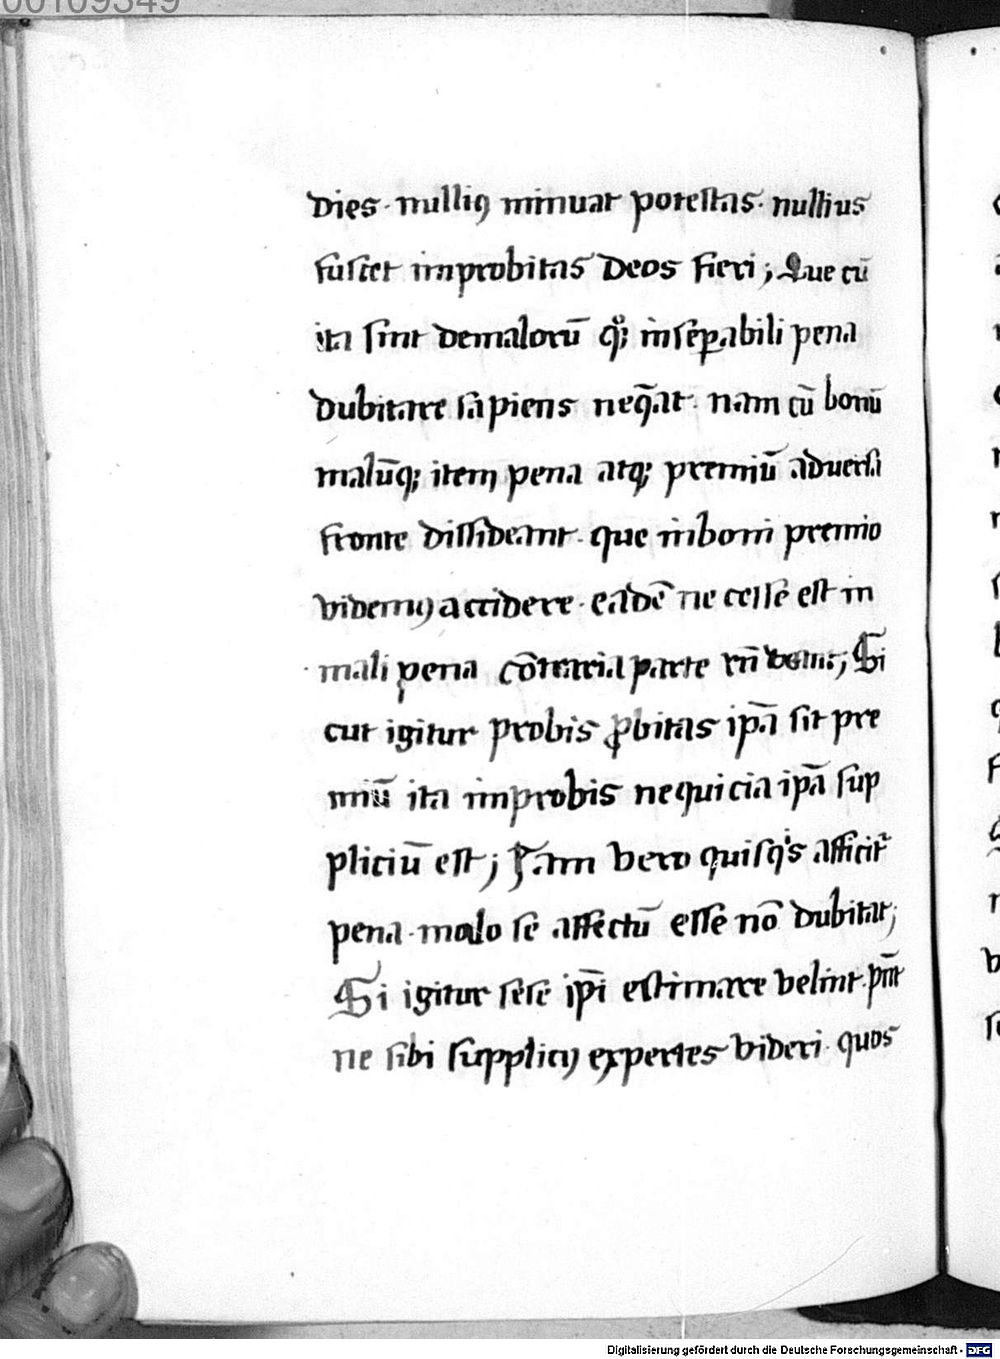 00109349
dies · nulliꝰ minuat potestas · nullius
fuscet improbitas deos fieri ; Que cū
ita sint demalorū qͦꝫ inseꝑabili pena
dubitare sapiens neq̄at · nam cū bonū
malūqꝫ item pena atqꝫ premiū aduersa
fronte dissideant · que inboni premio
videmꝰ accidere · eadē ne cesse est in
mali pena cōtraria parte
Si
cut igitur probis ꝓbitas ip̄a sit pre
miū ita improbis nequicia ip̄a sup
pliciū est ; Jam vero quisqͥs afficit᷑
pena · malo se affectū esse nō dubitat ;
Si igitur sese ip̄i estimare velint · pn̄t
ne sibi supplicij expertes videri · quos
Digitalisierung gefördert durch die Deutsche Forschungsgemeinschaft - DFG